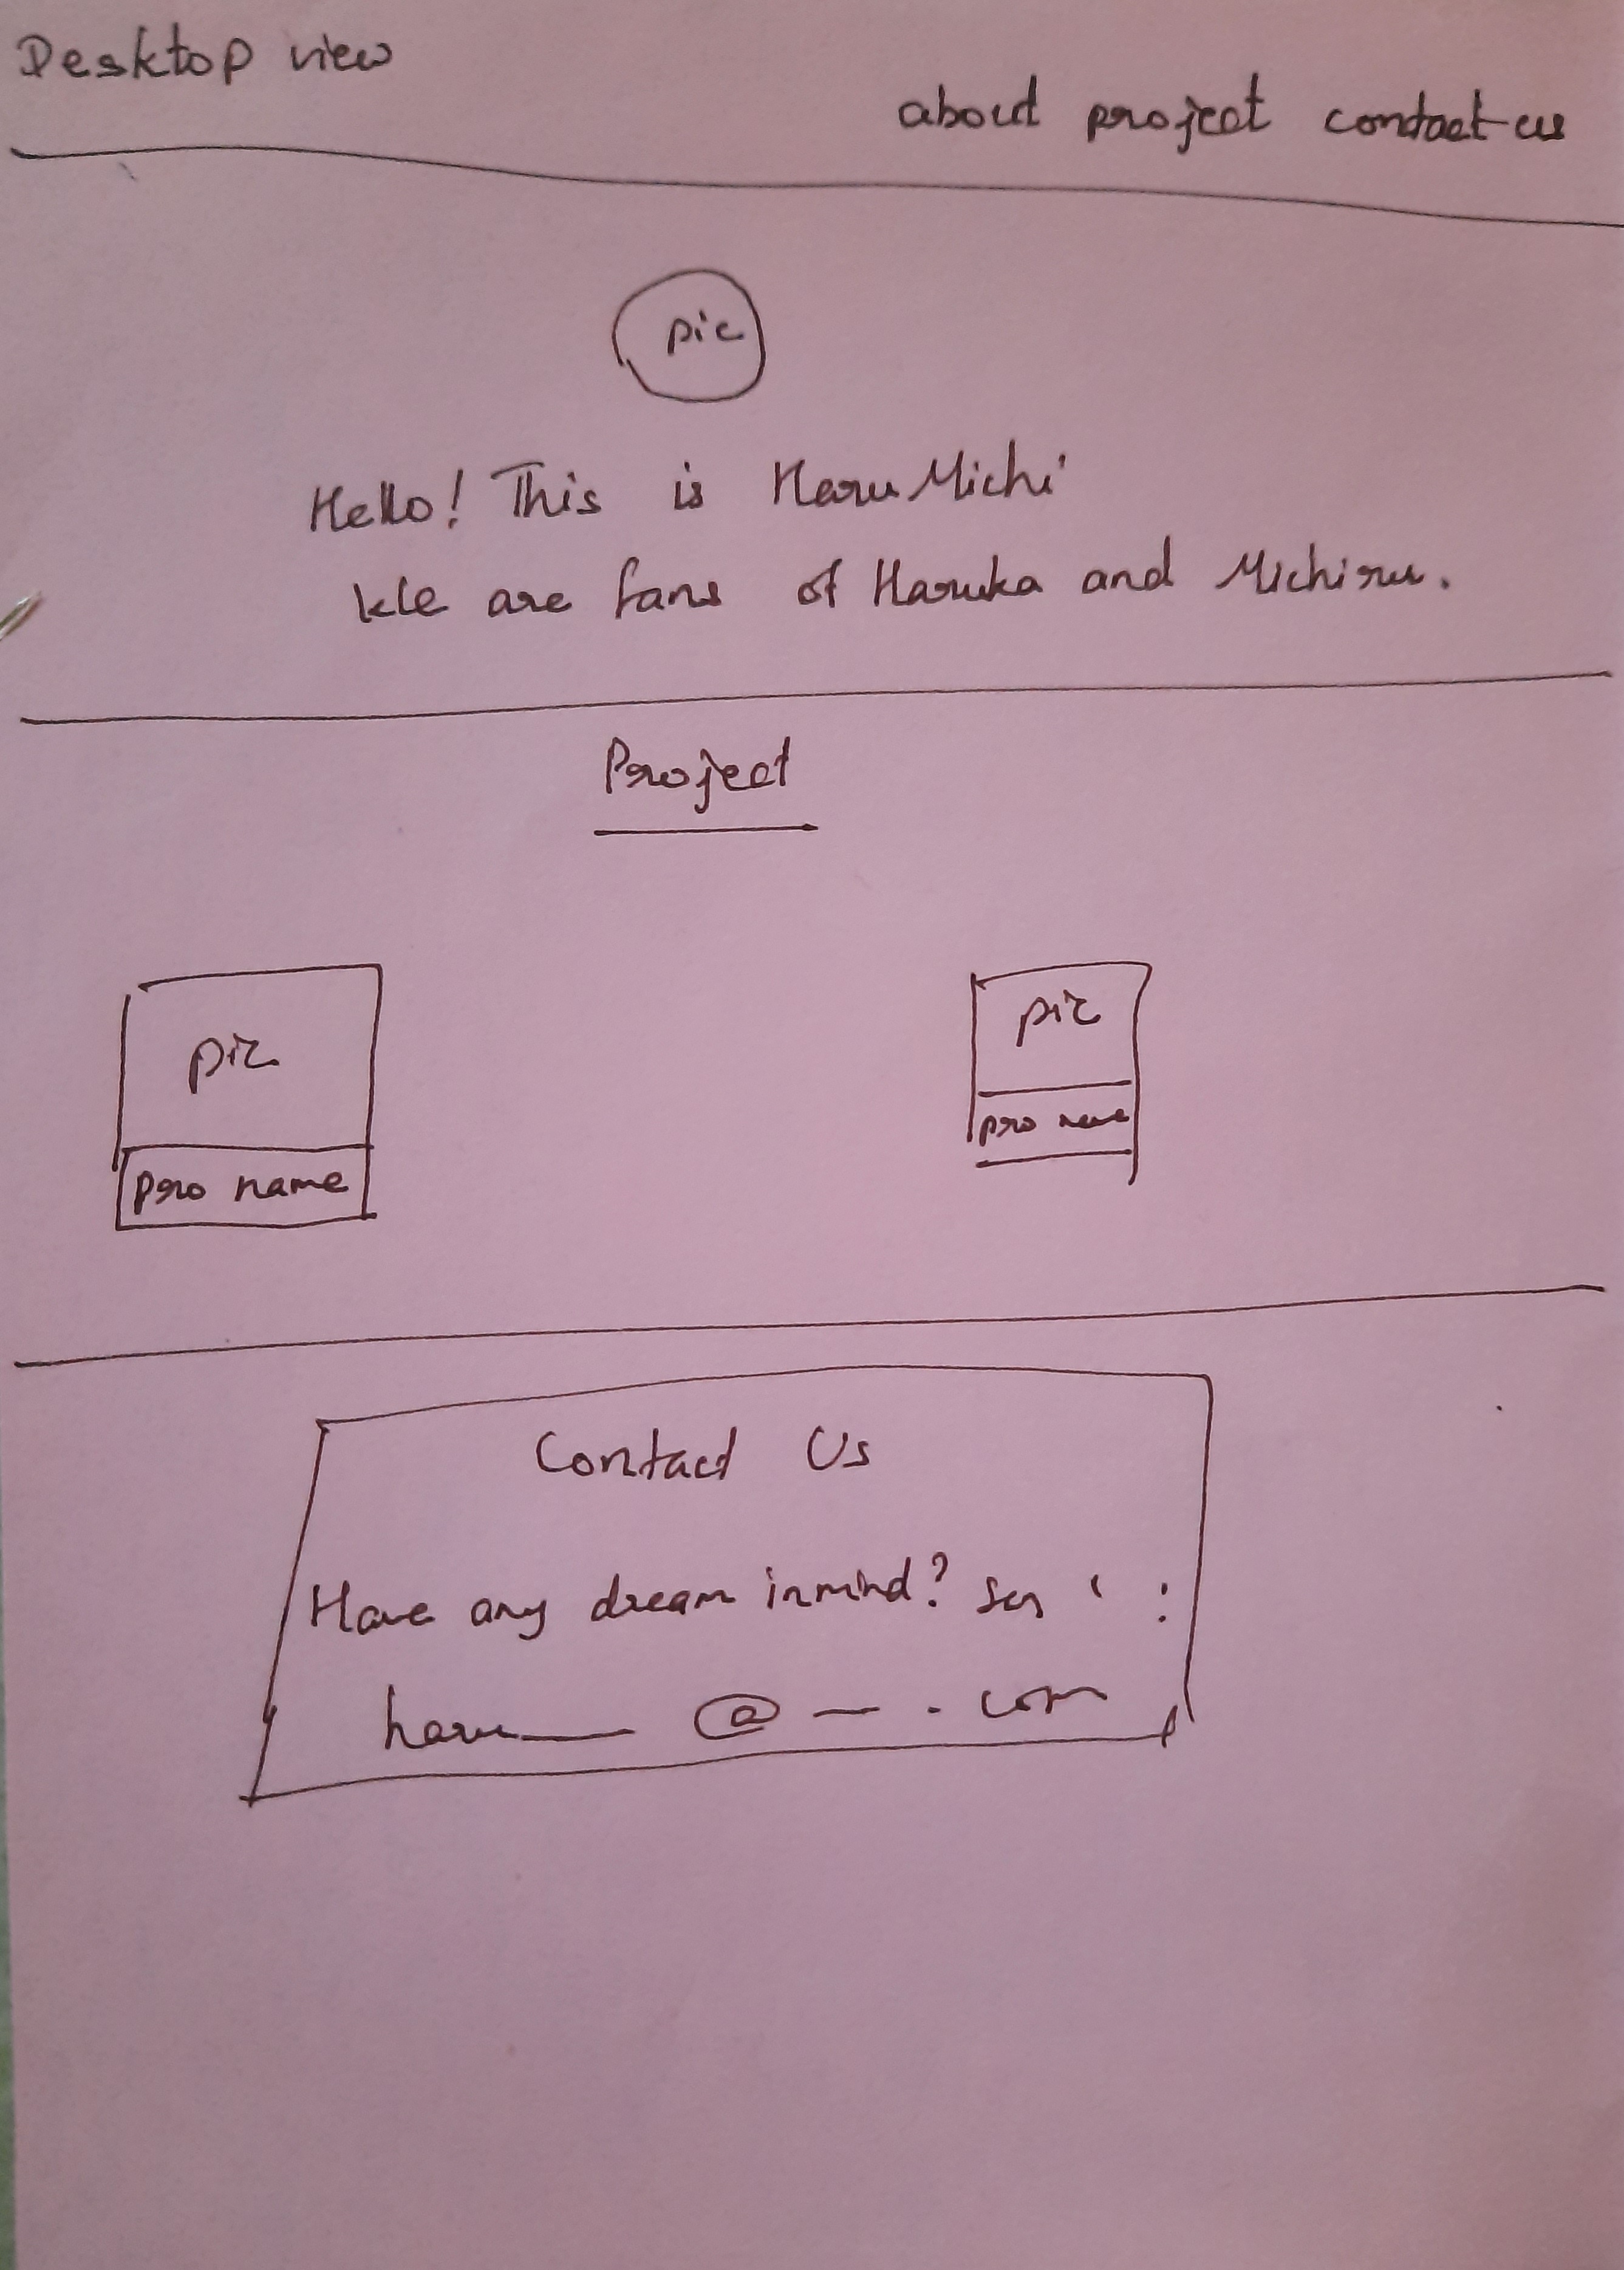 Desktop view
about project contact us
pic
Hello! This is HaruMichi
We are fans of Haruka and Michiru.
Project
pic
pro name
pic
pro name
Contact Us
Have any dream in mind? :
haru @ . com